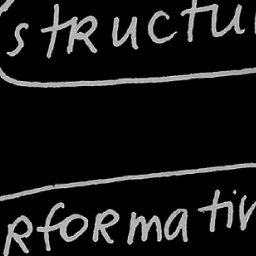 structu
rformativ